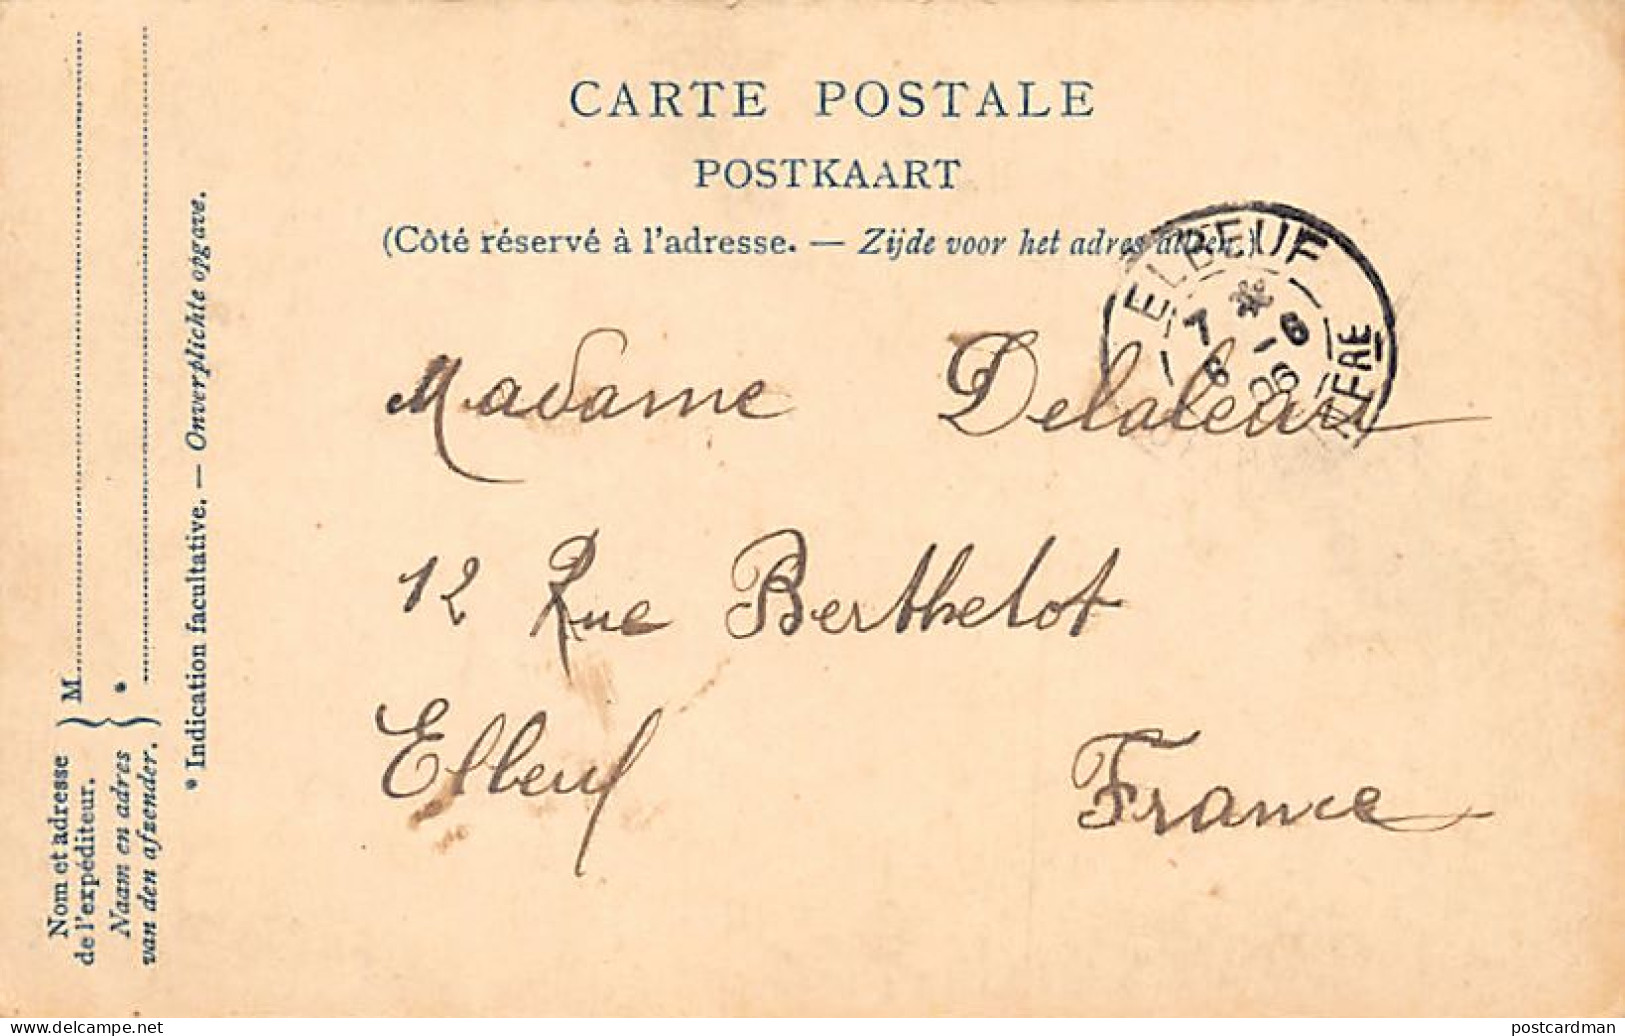 CARTE POSTALE
POSTKAART
(Côté réservé à l'adresse. — Zijde voor het adres alleen.)
ELBEUF
7 * 6
6 - 06
INFRE
Madame
12 Rue Berthelot
Elbeuf France
Nom et adresse
de l'expéditeur.
Naam en adres
van den afzender.
M
*
* Indication facultative. — Onverplichte opgave.
delcampe.net
postcardman